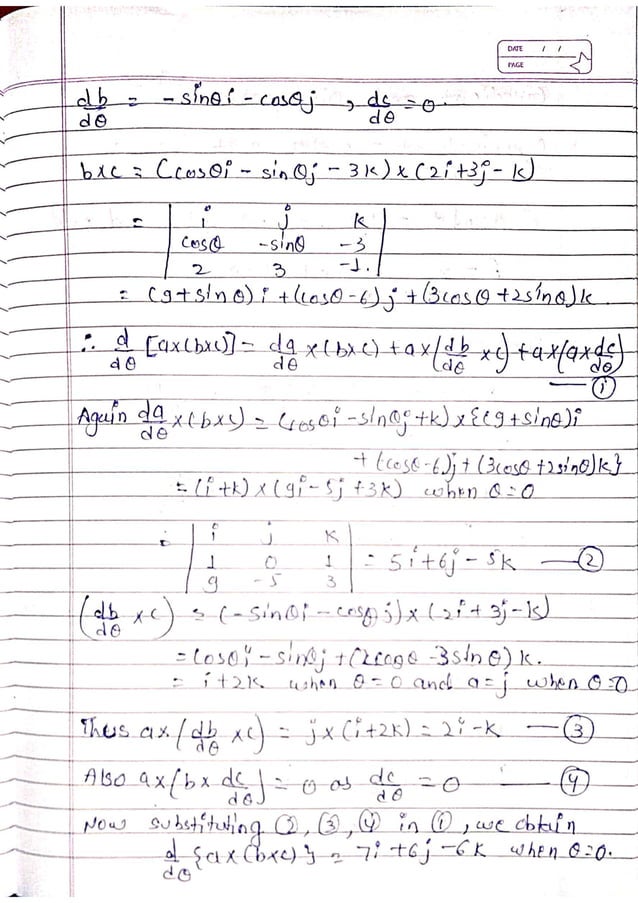 DATE / /
PAGE
db/dθ = - sinθi - cosθj , dc/dθ = 0.
bxc = (cosθi - sinθj - 3k) x (2i+3j-k)
= | i j k |
| cosθ -sinθ -3 |
| 2 3 -1. |
= (9+sinθ)i + (cosθ-6)j + (3cosθ+2sinθ)k
∴ d/dθ [ax(bxc)] = da/dθ x(bxc) + ax(db/dθ xc) + ax(ax dc/dθ)
— ①
Again da/dθ x(bxc) = (cosθi - sinθj + k) x {(9+sinθ)i
+ (cosθ-6)j + (3cosθ+2sinθ)k}
= (i+k) x (9i-5j+3k) when θ=0
= | i j k |
| 1 0 1 | = 5i+6j-5k — ②
| 9 -5 3 |
(db/dθ xc) = (-sinθi - cosθj) x (2i+3j-k)
= cosθi - sinθj + (2cosθ-3sinθ)k.
= i+2k when θ=0 and a=j when θ=0
Thus ax(db/dθ xc) = jx(i+2k) = 2i-k — ③
Also ax(bx dc/dθ) = 0 as dc/dθ = 0 — ④
Now substituting ②, ③, ④ in ①, we obtain
d/dθ {ax(bxc)} = 7i+6j-6k when θ=0.